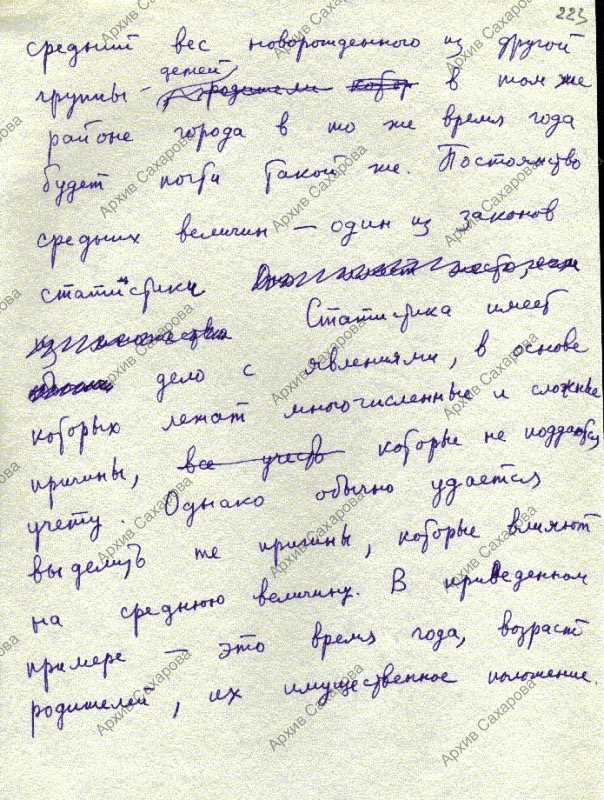 223
средний вес новорожденного из другой
детей
группы - родители котор в том же
районе города в то же время года
будет почти такой же. Постоянство
средних величин — один из законов
статистики
Статистика имеет
дело с явлениями, в основе
которых лежат многочисленные и сложные
причины, все учесть которые не поддаются
учету. Однако обычно удается
выделить те причины, которые влияют
на среднюю величину. В приведенном
примере — это время года, возраст
родителей, их имущественное положение.
Архив Сахарова